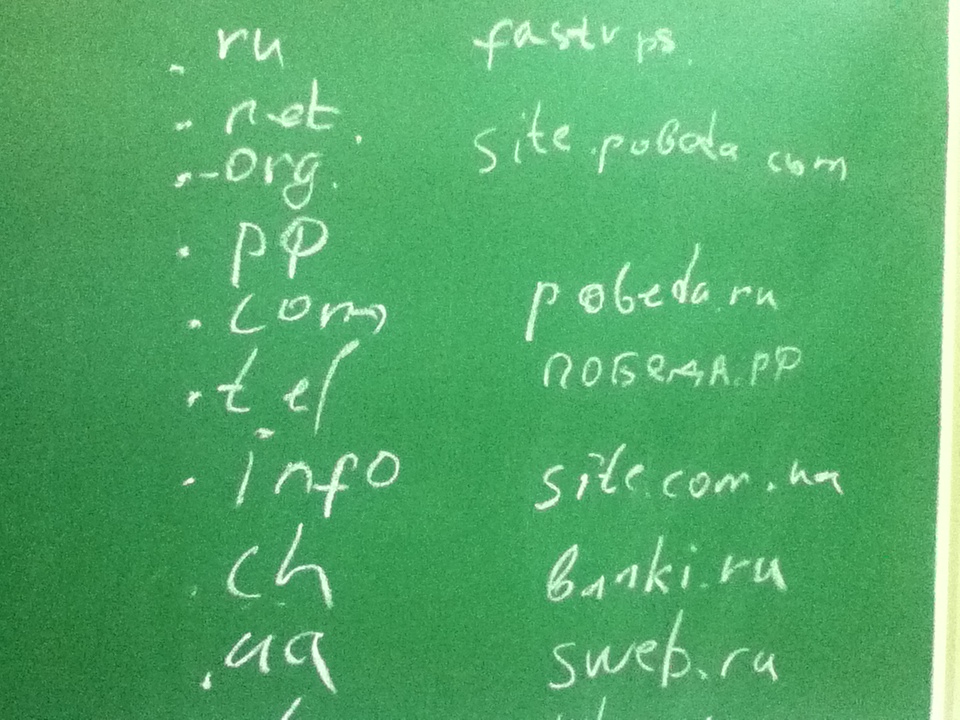 .ru
fastvps.
.net.
site.pobeda com
.org.
.рф
pobeda.ru
.com
ПОБЕДА.РФ
.tel
.info
site.com.ua
.ch
banki.ru
.ua
sweb.ru